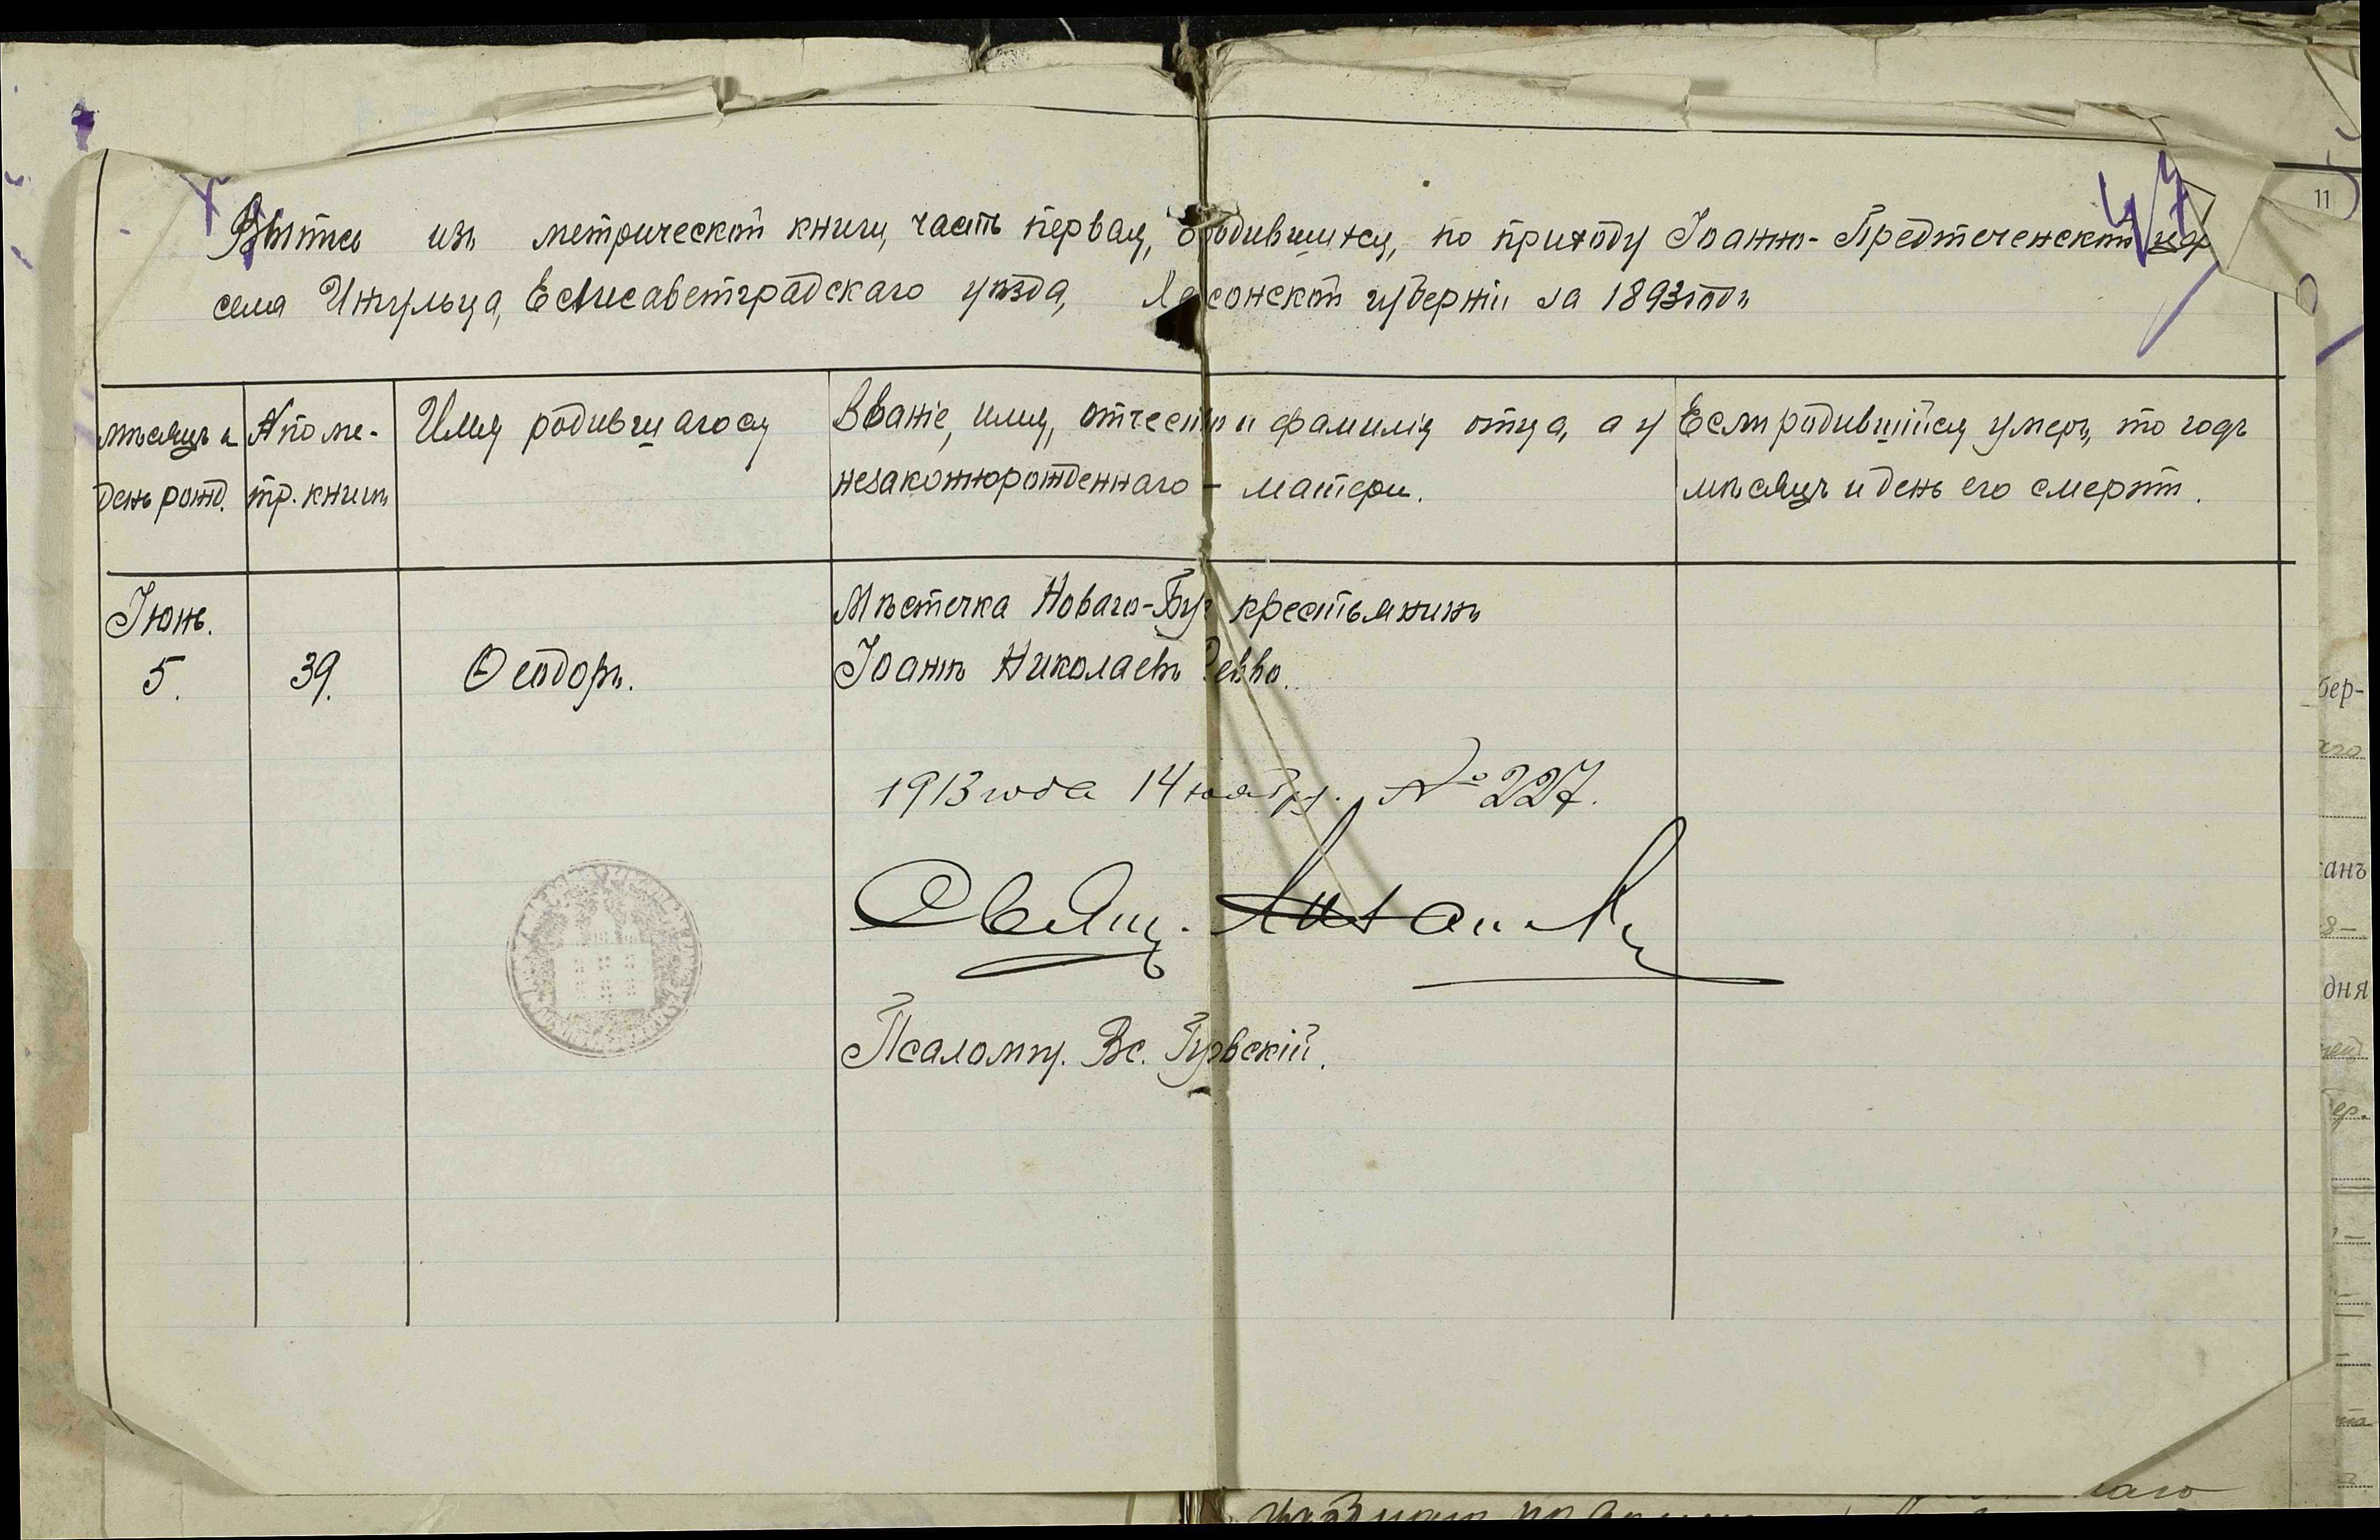 47
11
Выпись изъ метрической книги, часть первая, о родившихся, по приходу Іоанно-Предтеченской цер
села Ингульца, Елисаветградскаго уѣзда, Херсонской губерніи за 1893 годъ
мѣсяцъ и
день рожд.
№ по ме-
тр. книги
Имя родившагося
Званіе, имя, отчество и фамилія отца, а у
незаконнорожденнаго - матери.
Если родившійся умеръ, то годъ
мѣсяцъ и день его смерти.
Іюнь.
5.
39.
Ѳеодоръ.
Мѣстечка Новаго-Буг крестьянинъ
Іоаннъ Николаевъ
1913 года 14 ноября. № 227.
Свящ.
Псаломщ. Вс. Гурвскій.
бер-
анъ
дня